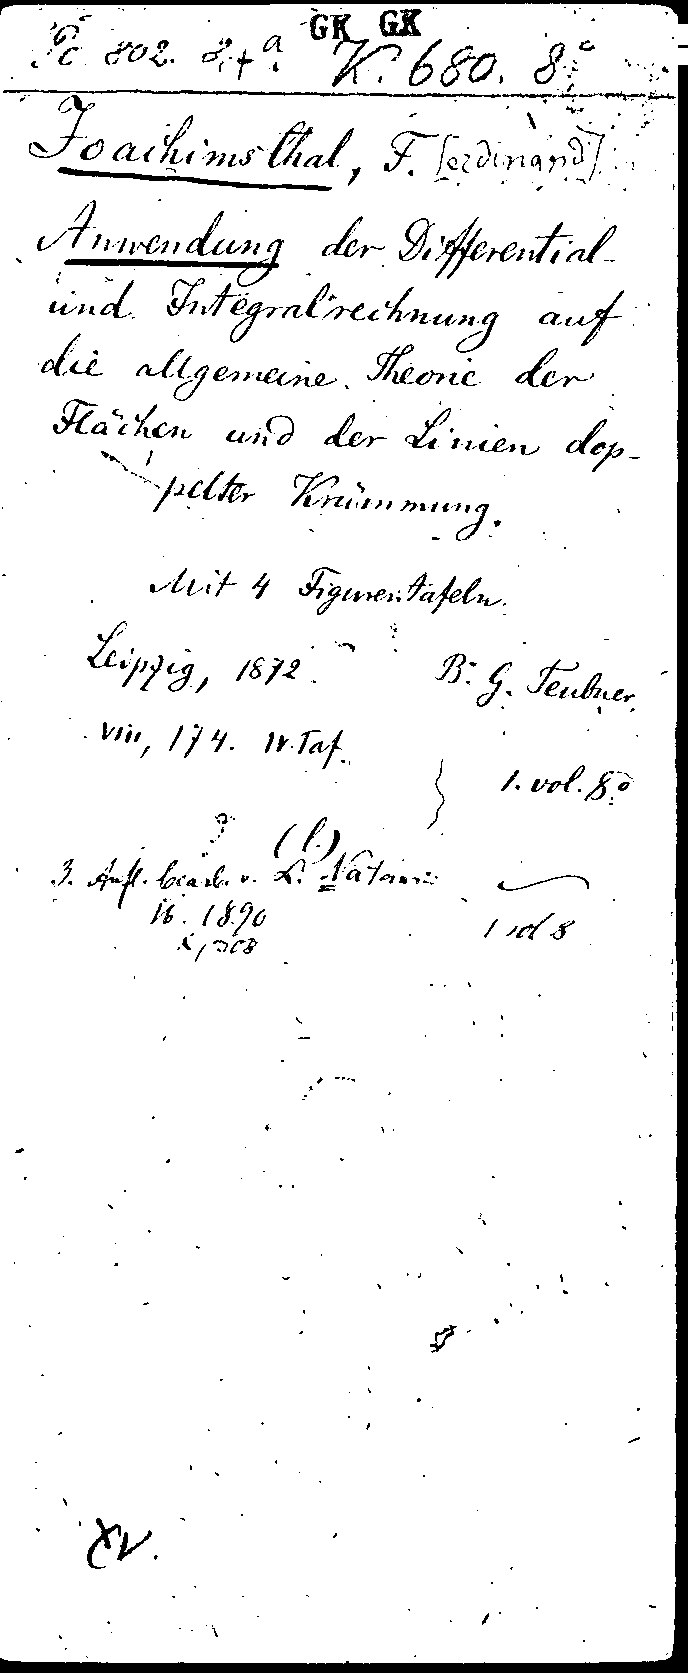 GK GK
Pc 802. 24a. K. 680. 8°
Joachimsthal, F. [erdinand]
Anwendung der Differential-
und Integralrechnung auf
die allgemeine Theorie der
Flächen und der Linien dop-
pelter Krümmung.
Mit 4 Figurentafeln.
Leipzig, 1872. B. G. Teubner.
VIII, 174. IV. Taf.
1. vol. 8°
(l.)
3. Aufl. bearb. v. L. Natani
ib. 1890
X, 308 1 vol 8
XV.